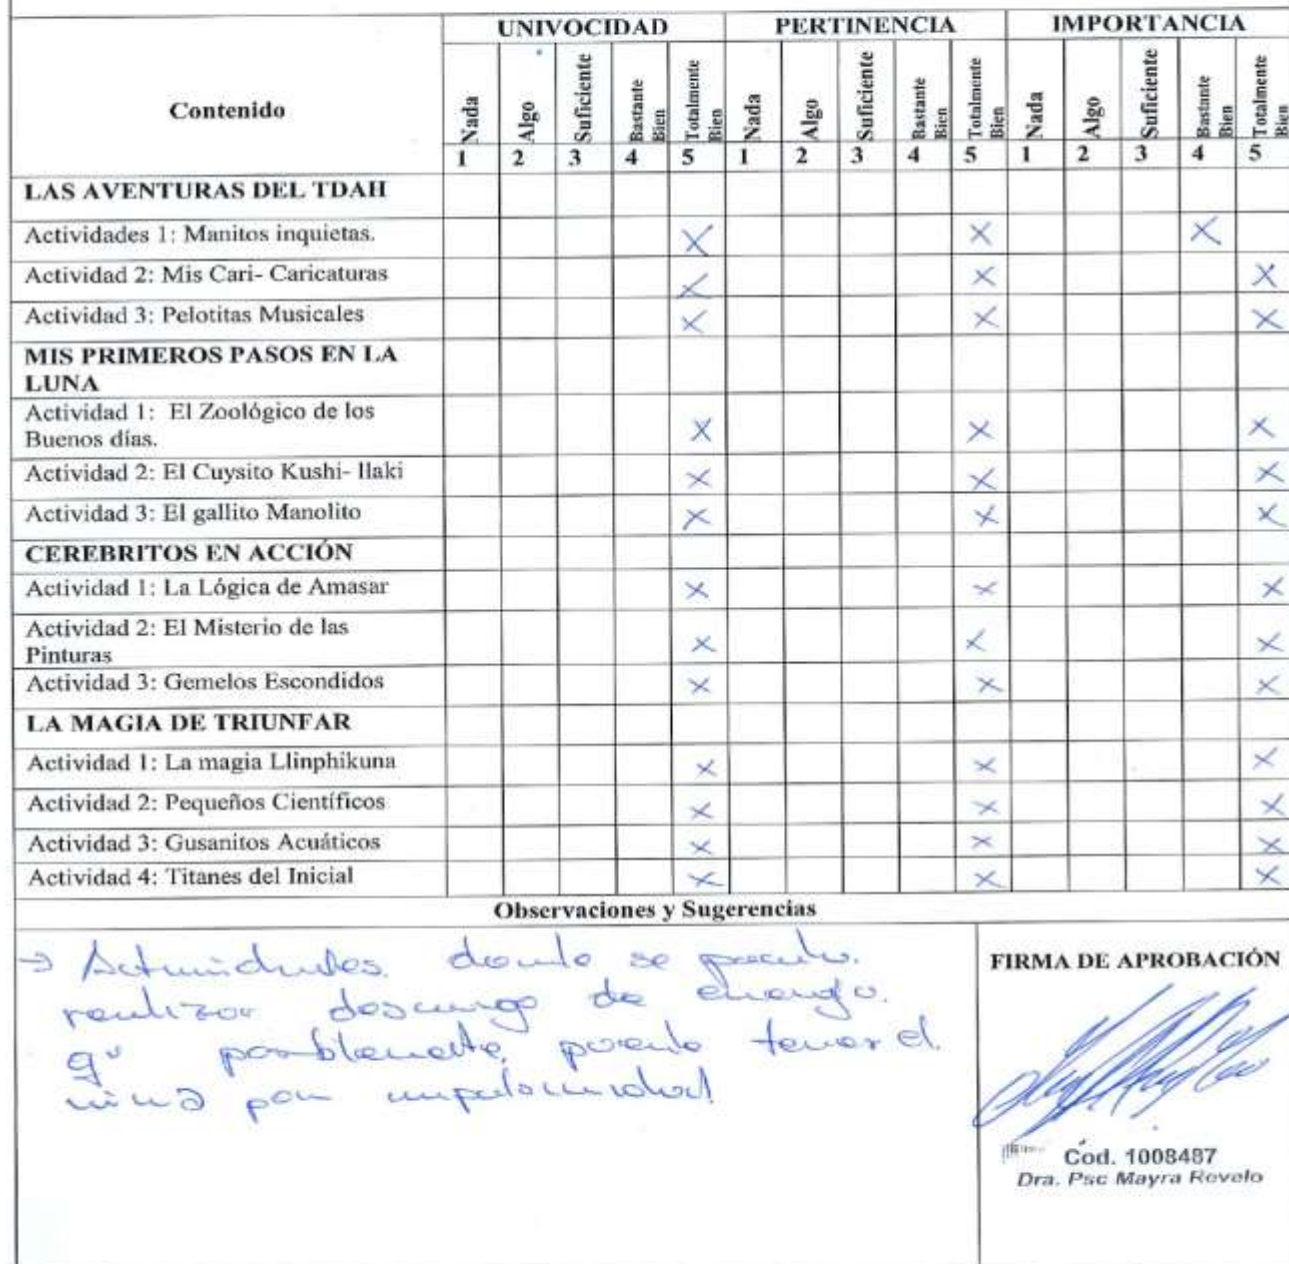 UNIVOCIDAD PERTINENCIA IMPORTANCIA
Contenido Nada Algo Suficiente Bastante Bien Totalmente Bien Nada Algo Suficiente Bastante Bien Totalmente Bien Nada Algo Suficiente Bastante Bien Totalmente Bien
1 2 3 4 5 1 2 3 4 5 1 2 3 4 5
LAS AVENTURAS DEL TDAH
Actividades 1: Manitos inquietas. X X X
Actividad 2: Mis Cari- Caricaturas X X X
Actividad 3: Pelotitas Musicales X X X
MIS PRIMEROS PASOS EN LA
LUNA
Actividad 1: El Zoológico de los
Buenos días. X X X
Actividad 2: El Cuysito Kushi- llaki X X X
Actividad 3: El gallito Manolito X X X
CEREBRITOS EN ACCIÓN
Actividad 1: La Lógica de Amasar X X X
Actividad 2: El Misterio de las
Pinturas X X X
Actividad 3: Gemelos Escondidos X X X
LA MAGIA DE TRIUNFAR
Actividad 1: La magia Llinphikuna X X X
Actividad 2: Pequeños Científicos X X X
Actividad 3: Gusanitos Acuáticos X X X
Actividad 4: Titanes del Inicial X X X
Observaciones y Sugerencias
→ Actividades donde se pueda
realizar descarga de energía
qu posiblemente pueda tener el
niño por impulsividad
FIRMA DE APROBACIÓN
Cod. 1008487
Dra. Psc Mayra Revelo